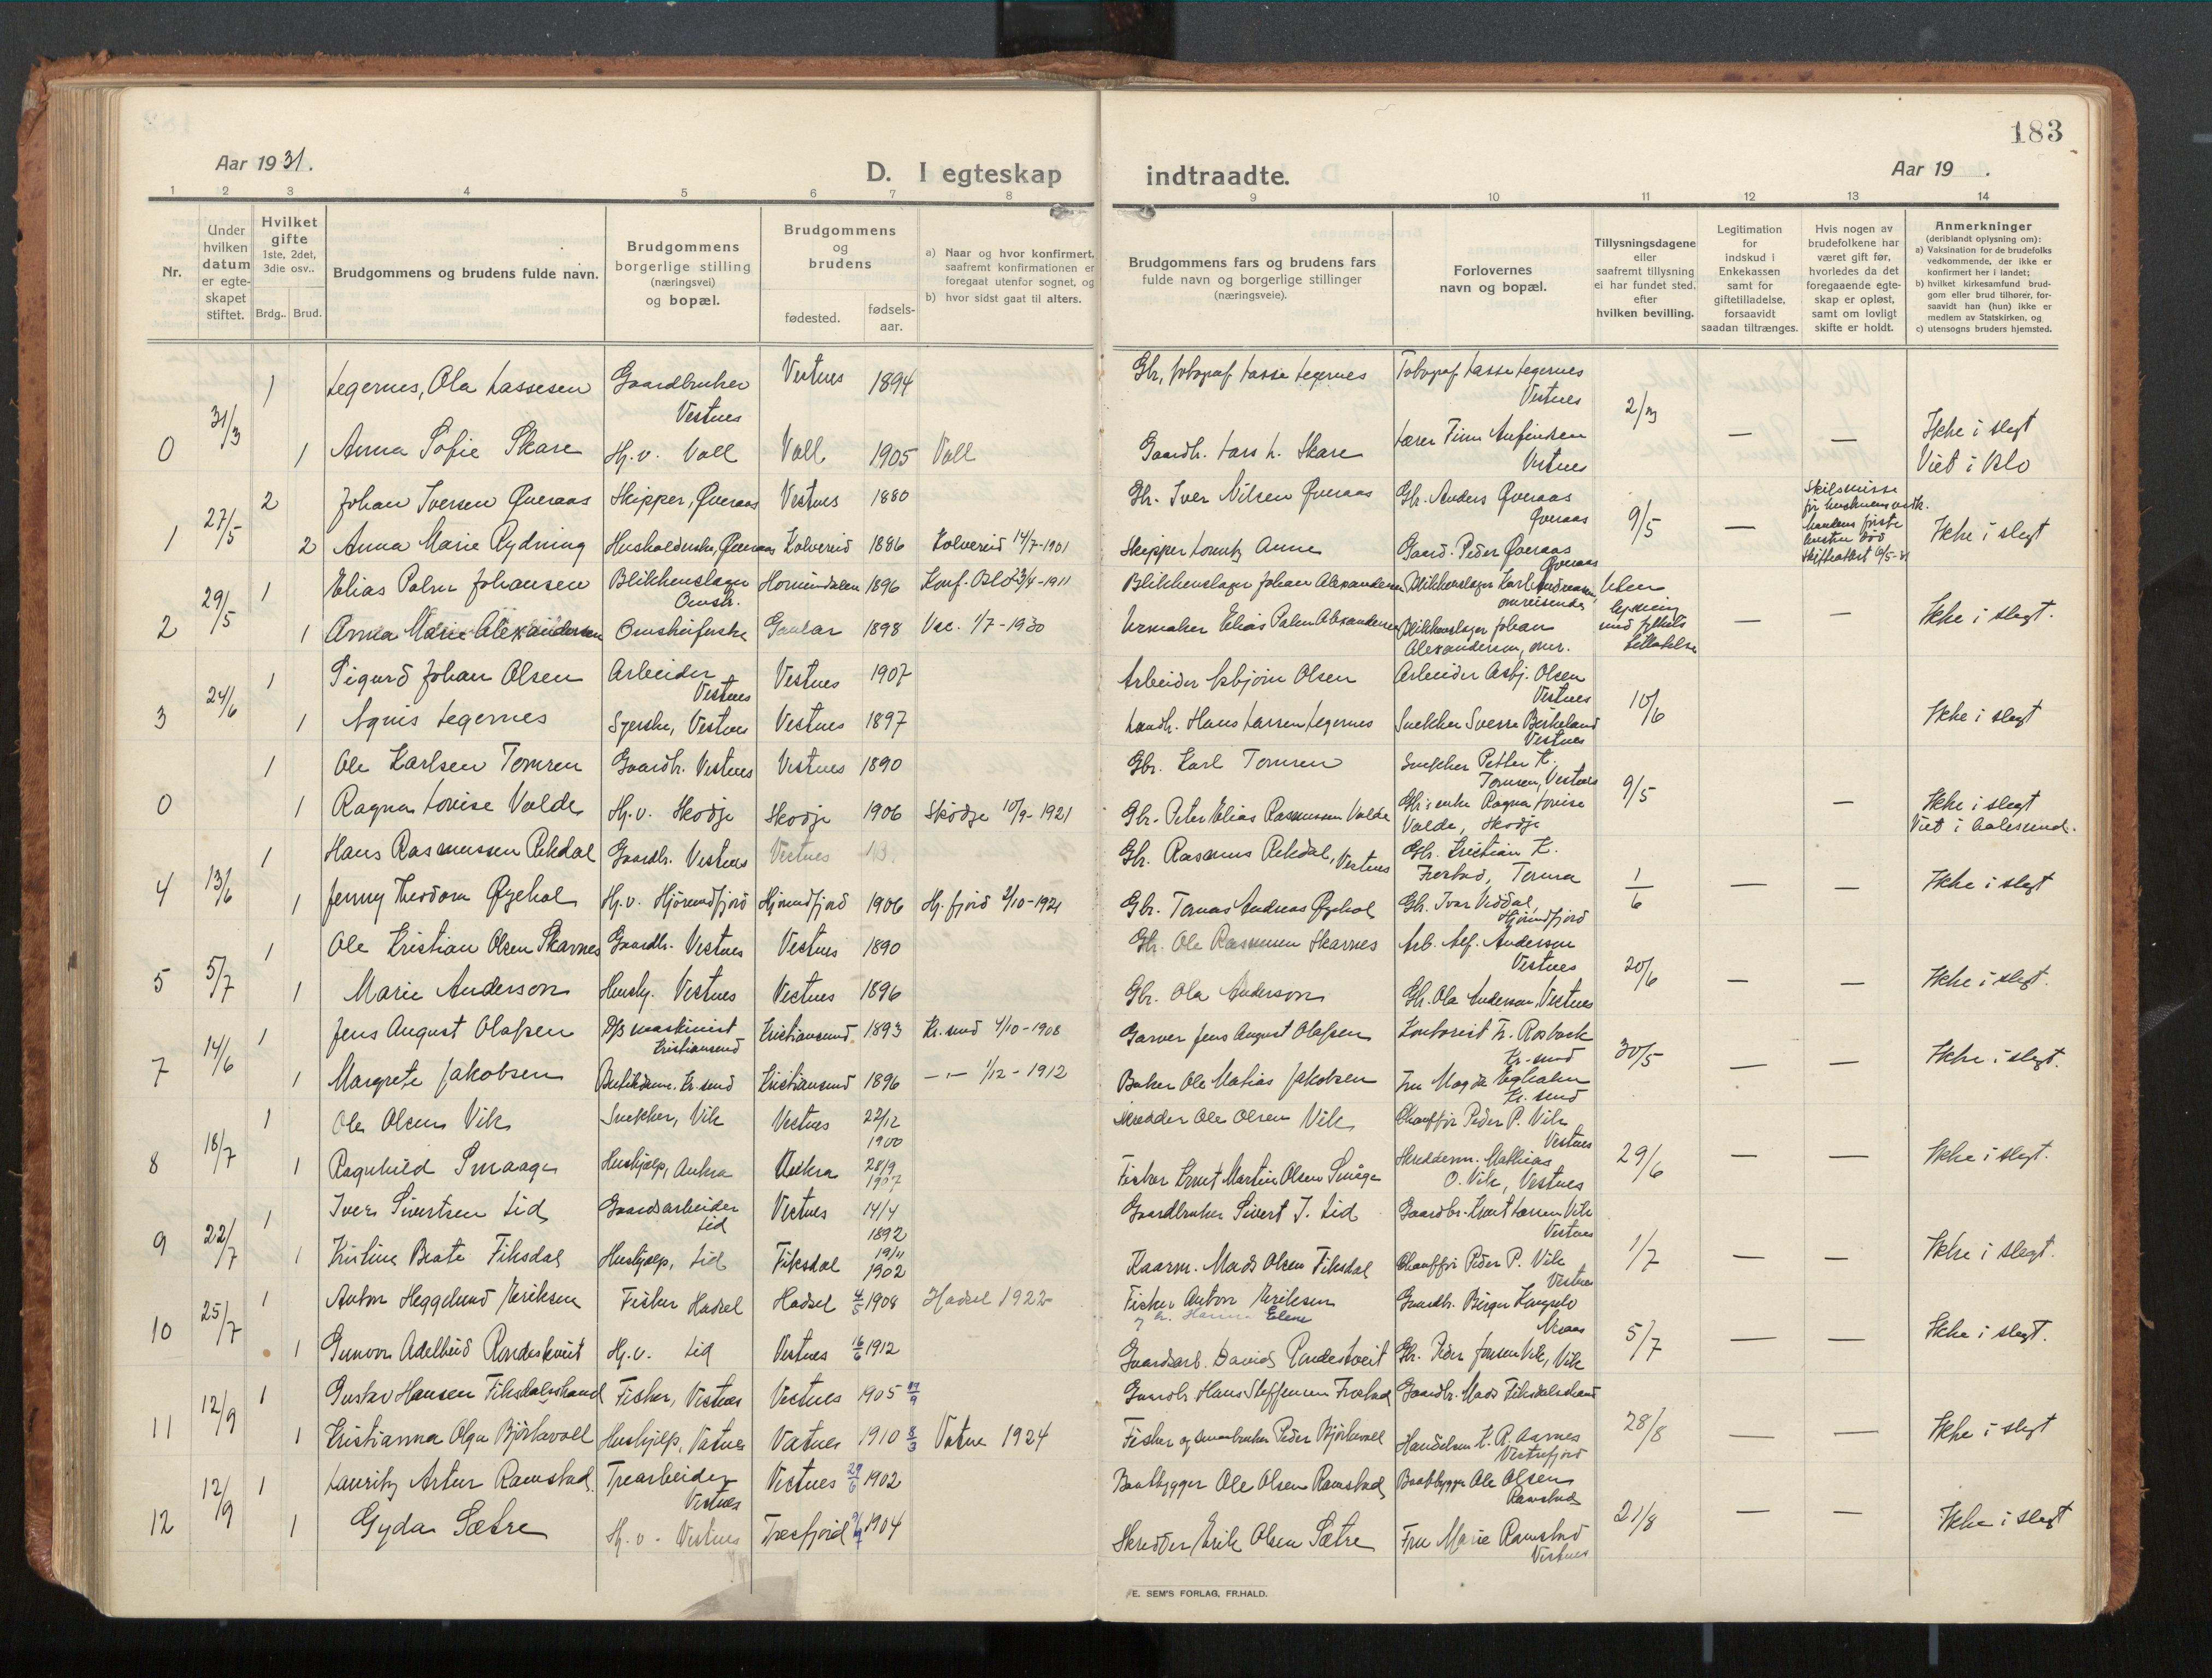 183
Aar 1931.
D. I egteskap indtraadte.
Aar 19 .
1 2 3 4 5 6 7 8 9 10 11 12 13 14
Nr.
Under hvilken datum er egteskapet stiftet.
Hvilket gifte 1ste, 2det, 3die osv..
Brdg.. Brud.
Brudgommens og brudens fulde navn.
Brudgommens borgerlige stilling (næringsvei) og bopæl.
Brudgommens og brudens
fødested. fødsels-aar.
a) Naar og hvor konfirmert, saafremt konfirmationen er foregaat utenfor sognet, og
b) hvor sidst gaat til alters.
Brudgommens fars og brudens fars fulde navn og borgerlige stillinger (næringsveie).
Forlovernes navn og bopæl.
Tillysningsdagene eller saafremt tillysning ei har fundet sted, efter hvilken bevilling.
Legitimation for indskud i Enkekassen samt for giftetilladelse, forsaavidt saadan tiltrænges.
Hvis nogen av brudefolkene har været gift før, hvorledes da det foregaaende egteskap er opløst, samt om lovligt skifte er holdt.
Anmerkninger (deriblandt oplysning om):
a) Vaksination for de brudefolks vedkommende, der ikke er konfirmert her i landet;
b) hvilket kirkesamfund brudgom eller brud tilhører, forsaavidt han (hun) ikke er medlem av Statskirken, og
c) utensogns bruders hjemsted.
1 Legernes, Ola Lassesen Gaardbruker Vestnes Vestnes 1894 Gbr, fotograf Lasse Legernes Fotograf Lasse Legernes Vestnes
0 31/3 1 Anna Sofie Skare Hj.v. Voll Voll 1905 Voll Gaardb. Lars L. Skare Lærer Finn Vestnes — — Ikke i slegt Viet i Oslo
2 Johan Iversen Øveraas Skipper, Øveraas Vestnes 1880 Gbr. Iver Nilsen Øveraas Gbr. Anders Øveraas Øveraas
1 27/5 2 Anna Marie Rydning Husholderske, Øveraas Kolvereid 1886 Kolvereid 14/7-1901 Skipper Lorentz Gaardb. Peder Øveraas Øveraas 9/5 — Ikke i slegt
1 Elias Palm Johansen Blikkenslager Omstr. Hornindalen 1896 Konf. Oslo 23/4-1911 Blikkenslager Johan Alexandersen Blikkenslager Karl omreisende
2 29/5 1 Anna Marie Alexandersen Gaular 1898 Vac. 1/7-1930 Urmaker Elias Palm Alexandersen Blikkenslager Johan Alexandersen, Uten lysning med fylkets tillatelse — — Ikke i slegt.
1 Sigurd Johan Olsen Arbeider Vestnes Vestnes 1907 Arbeider Asbjørn Olsen Arbeider Asbj. Olsen Vestnes
3 24/6 1 Agnis Legernes Syerske, Vestnes Vestnes 1897 Landh. Hans Larsen Legernes Snekker Sverre Birkeland Vestnes 10/6 Ikke i slegt
1 Ole Karlsen Tomren Gaardb. Vestnes Vestnes 1890 Gbr. Karl Tomren Snekker Petter K. Tomren, Vestnes
0 1 Ragna Lovise Valde Hj.v. Skodje Skodje 1906 Skodje 10/9-1921 Gbr. Peter Elias Rasmussen Valde Gbr's enke Ragna Lovise Valde, Skodje 9/5 — Ikke i slegt Viet i Aalesund.
1 Hans Rasmussen Rekdal Gaardb. Vestnes Vestnes Gbr. Rasmus Rekdal, Vestnes Gbr. Kristian K. Frostad, Tomra
4 13/6 1 Jenny Theodora Øyehol Hj.v. Hjørundfjord Hjørundfjord 1906 Hj.fjord 2/10-1921 Gbr. Tomas Andreas Øyehol Gbr. Ivar Viddal, Hjørundfjord 1/6 — — Ikke i slegt
1 Ole Kristian Olsen Skarnes Gaardb. Vestnes Vestnes 1890 Gbr. Ole Rasmussen Skarnes Arb. Alf. Anderson Vestnes
5 5/7 1 Marie Anderson Hushj. Vestnes Vestnes 1896 Gbr. Ola Anderson Gbr. Ola Anderson, Vestnes 20/6 — — Ikke i slegt.
1 Jens August Olafsen D/s maskinist Kristiansund Kristiansund 1893 Kr.sund 4/10-1908 Garver Jens August Olafsen Kontorist Fr. Rosbach Kr.sund
7 14/6 1 Margrete Jakobsen Butikdame Kr.sund Kristiansund 1896 —"— 1/12-1912 Baker Ole Matias Jakobsen Fru Magda Egholm Kr.sund 30/5 — — Ikke i slegt.
1 Ole Olsen Vik Snekker, Vik Vestnes 22/12 1900 Skredder Ole Olsen Vik Chauffør Peder P. Vik Vestnes
8 18/7 1 Ragnhild Smaage Hushjelp, Aukra Aukra 28/9 1907 Fisker Knut Martin Olsen Småge Skredderm. Mathias O. Vik, Vestnes 29/6 — — Ikke i slegt.
1 Iver Sivertsen Lid Gaardsarbeider Lid Vestnes 14/4 1892 Gaardbruker Sivert J. Lid Gaardbr. Knut Larsen Vik Vestnes
9 22/7 1 Kristine Beate Fiksdal Hushjelp, Lid Fiksdal 19/11 1902 Kaarm. Mads Olsen Fiksdal Chauffør Peder P. Vik Vestnes 1/7 — — Ikke i slegt.
1 Anton Heggelund Eriksen Fisker Hadsel Hadsel 4/5 1908 Hadsel 1922 Fisker Anton Eriksen Gaardb. Birger
10 25/7 1 Gunvor Adelheid Rendestveit Hj.v. Lid Vestnes 16/6 1912 Gaardsarb. David Rendestveit Gbr. Peder Jonsen Vik, Vik 5/7 — — Ikke i slegt.
1 Gustav Hansen Fiksdalstrand Fisker, Vestnes Vestnes 1905 Gaardb. Hans Steffensen Frostad Gaardb. Mads Fiksdalstrand
11 12/9 1 Kristianna Olga Bjørkavoll Hushjelp, Vatne Vatne 1910 8/3 Vatne 1924 Fisker og smaabruker Peder Bjørkavoll Handelsm. K. R. Aarnes Vestrefjord 28/8 — — Ikke i slegt
1 Lauritz Artur Ramstad Trearbeider Vestnes Vestnes 29/6 1902 Baatbygger Ole Olsen Ramstad Baatbygger Ole Olsen Ramstad
12 12/9 1 Gyda Sætre Hj.v. Vestnes Tresfjord 1904 Skredder Erik Olsen Sætre Fru Marie Ramstad Vestnes 21/8 — — Ikke i slegt
E. SEM'S FORLAG, FR.HALD.